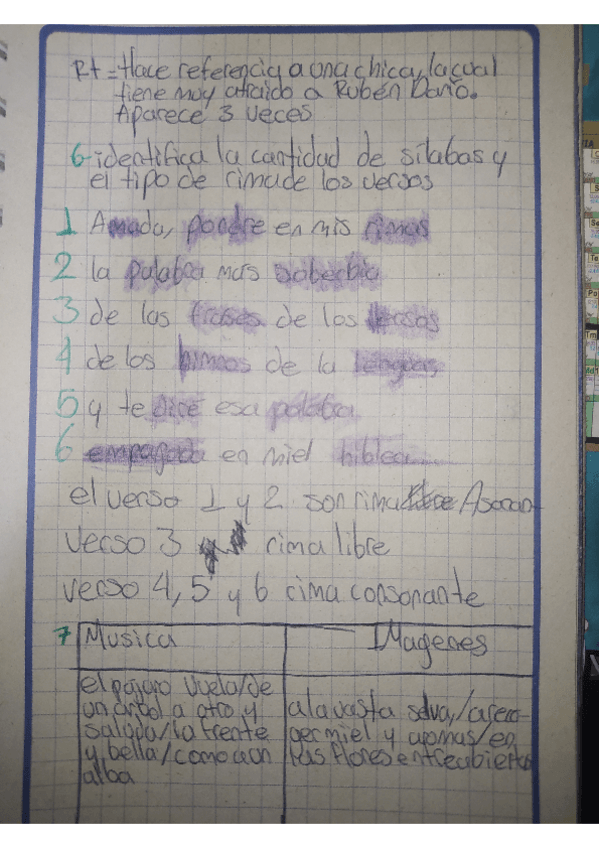 Rt = Hace referencia a una chica, la cual
tiene muy atraido a Rubén Darío.
Aparece 3 veces
6- identifica la cantidad de sílabas y
el tipo de rima de los versos
1 Amada, pondre en mis rimas
2 la palabra mas soberbia
3 de las frases de los versos
4 de los himnos de la lenguas
5 y te diré esa palabra
6 empapada en miel hiblea
el verso 1 y 2 son rima Asonan
verso 3 rima libre
verso 4, 5 y 6 rima consonante
7 Musica
IMagenes
el pájaro vuela/de
un arbol a otro y
saluda/la frente
y bella/como a un
alba
a la vasta selva,/a
ger miel y aromas/en
las flores entreabiertas